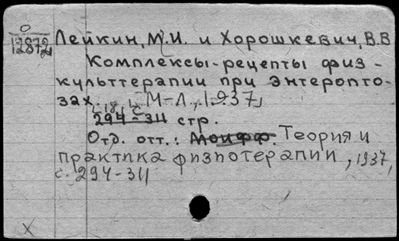 О
12872
Лейкин, М.И. и Хорошкевич, В.В
Комплексы-рецепты физ-
культтерапии при энтеропто-
зах. М-Л., 1937,
18, с
294-311 стр.
Отд. отт.: Теория и
практика физиотерапии, 1937,
с. 294-311
X